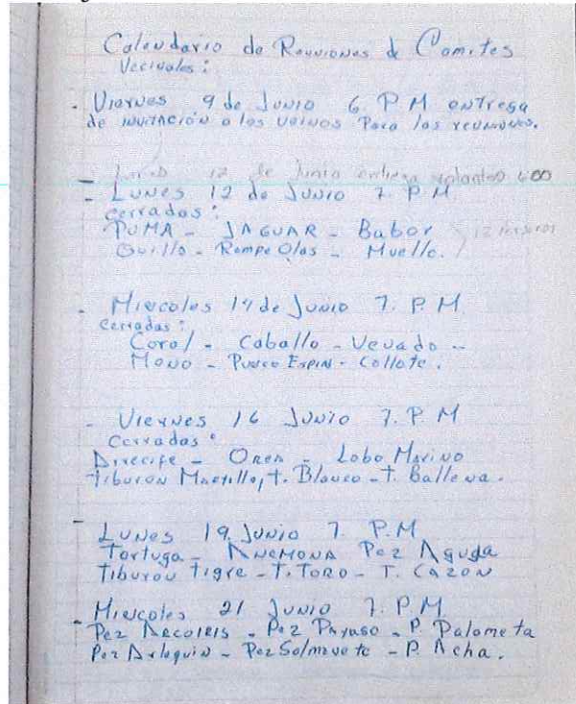 Calendario de Reuniones de Comites
Vecinales:
- Viernes 9 de Junio 6 P M entrega
de invitación a los vecinos Para las reuniones.
- Lunes 12 de Junio entrega volantes 6:00
- Lunes 12 de Junio 7. P.M
cerradas:
PUMA - JAGUAR - Babor
Quilla - Rompe Olas - Muelle.
- Miercoles 14 de Junio 7. P.M.
Cerradas:
Coral - Caballo - Venado -
Mono - Puerco Espin - Collote.
- Viernes 16 Junio 7. P.M
Cerradas:
Arrecife - Orca - Lobo Marino
Tiburon Martillo, t. Blanco - T. Ballena.
- Lunes 19 Junio 7. P.M
Tortuga - Anemona Pez Aguda
Tiburon Tigre - T. Toro - T. Cazon
- Miercoles 21 Junio 7. P.M
Pez Arcoiris - Pez Payaso - P. Palometa
Pez Arlequin - Pez Salmonete - P. Acha.